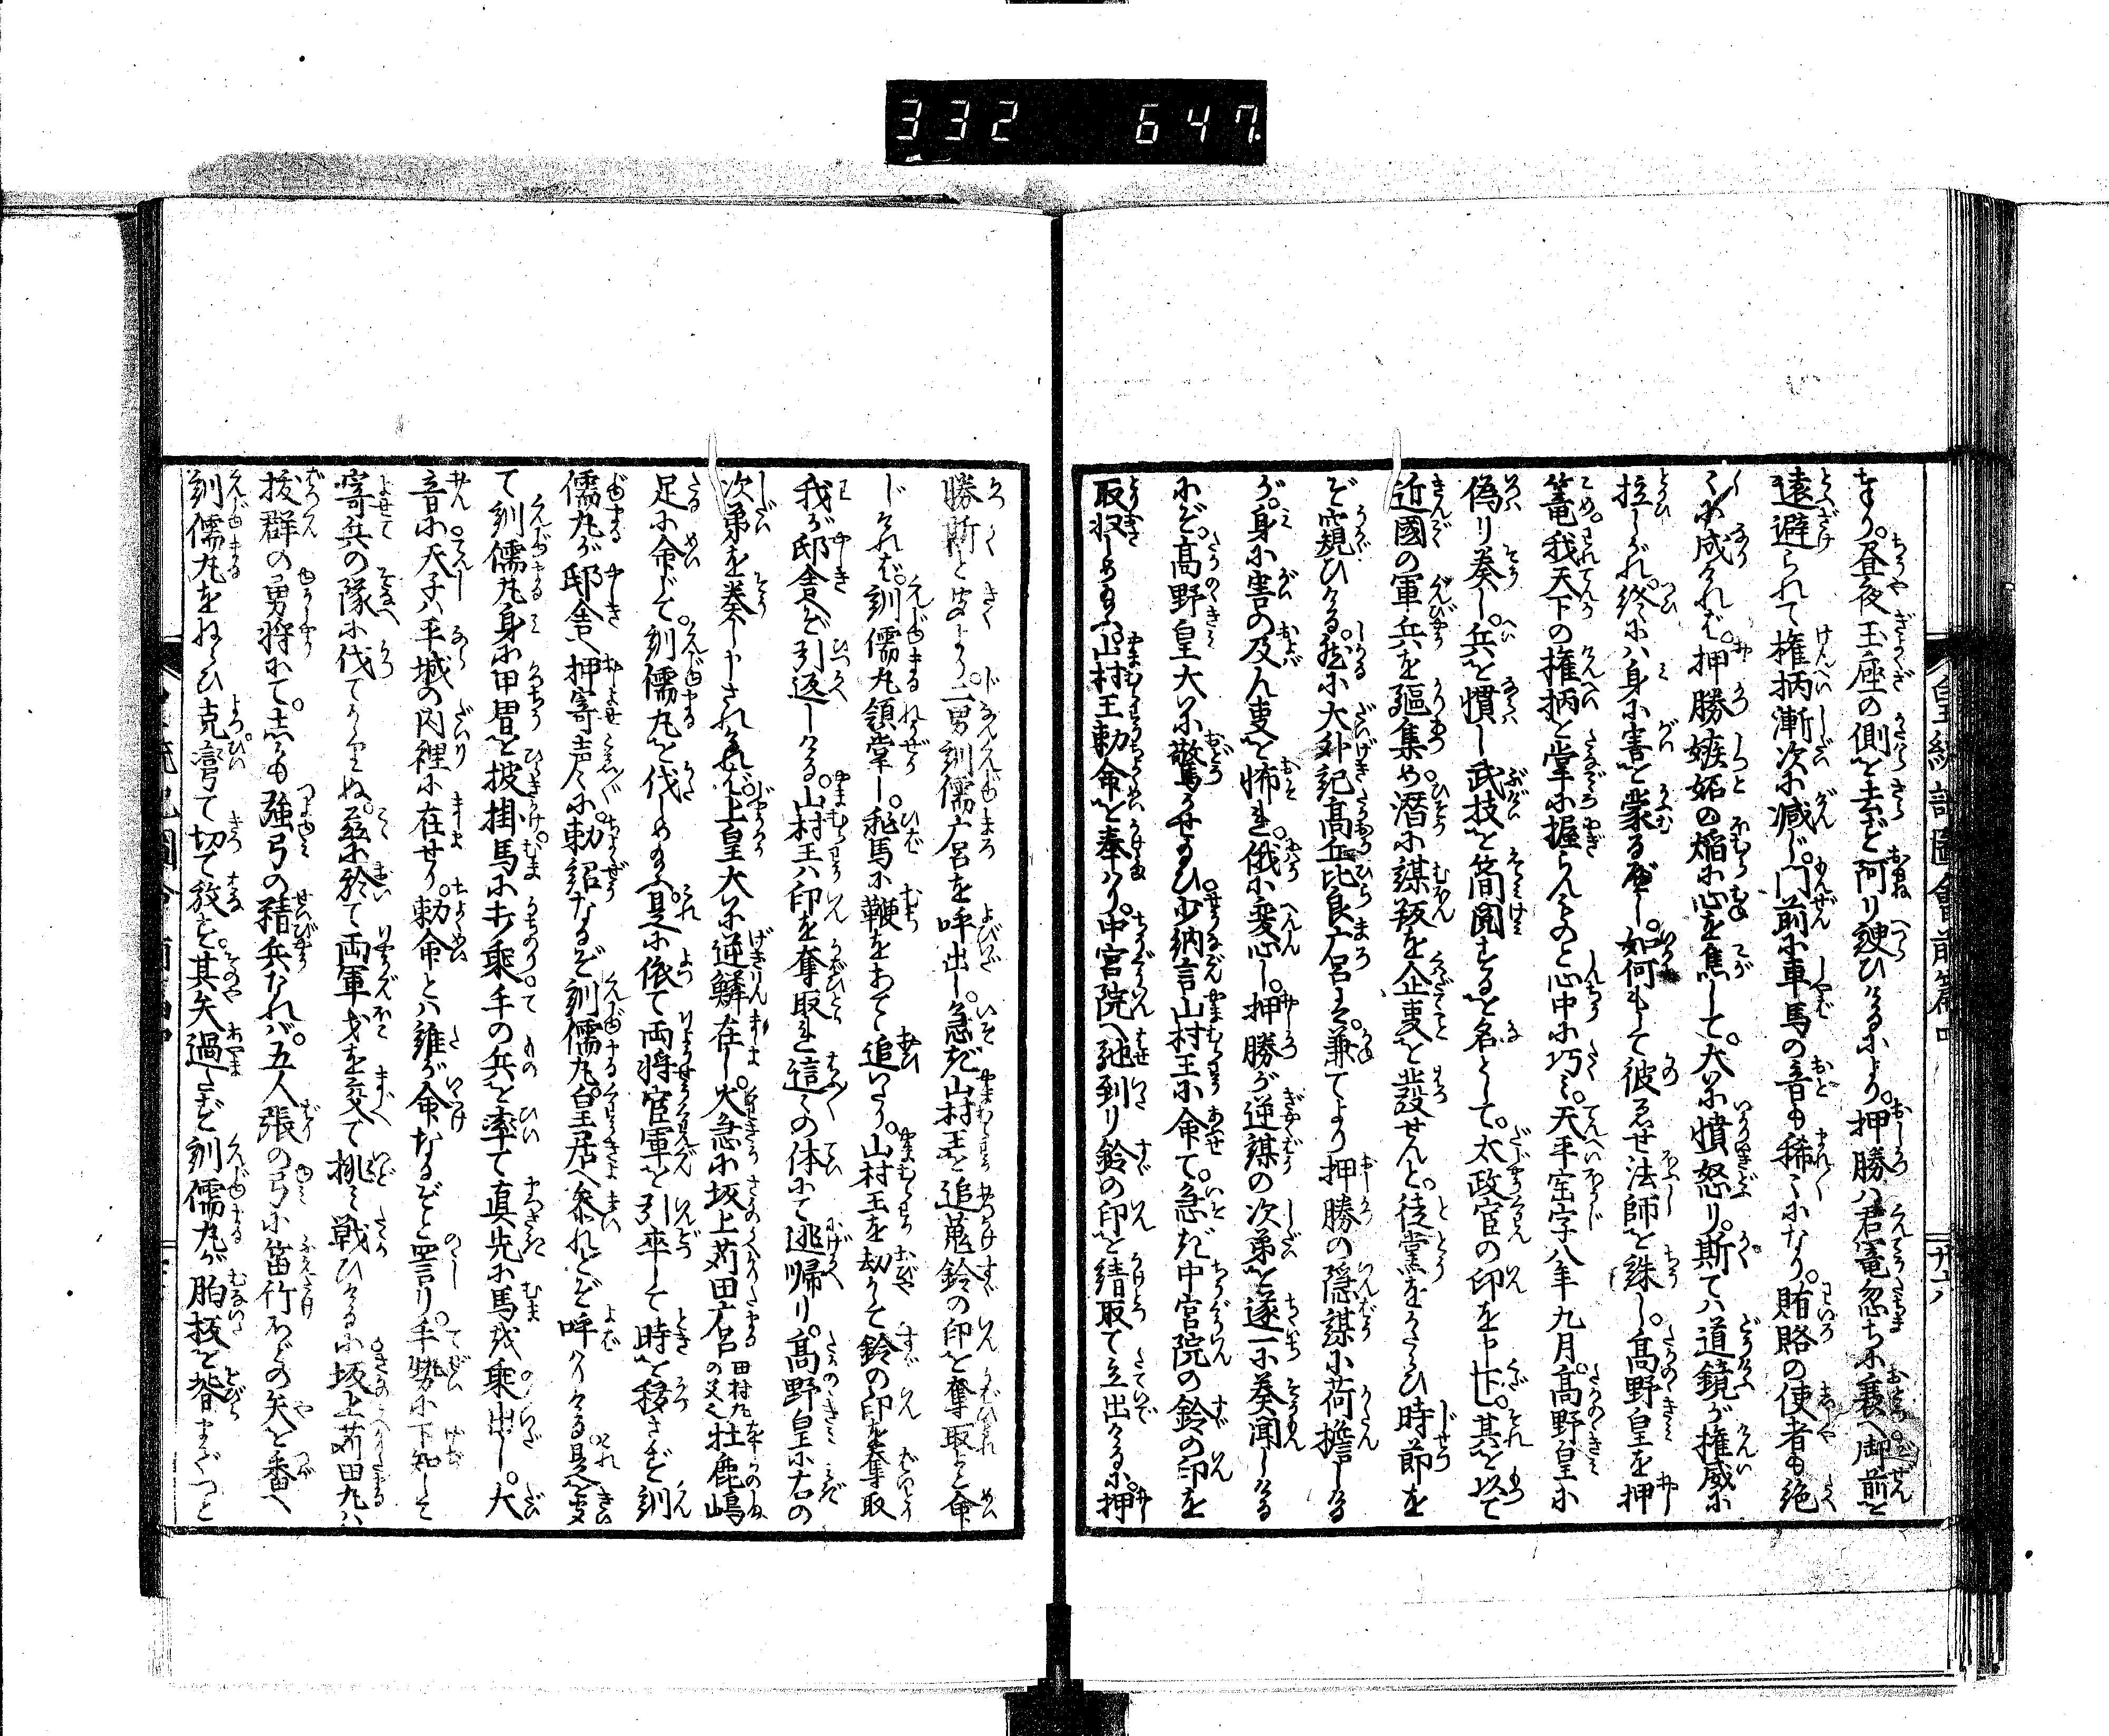 332 647
皇統記圖會前篇四
廿六
なり。昼夜玉座の側を去ず阿り諛ひけるにより。押勝ハ君寵忽ちに衰へ御前を
遠避られて権柄漸次に減じ。門前に車馬の音も稀〻になり。賄賂の使者も絶
〻に成ければ。押勝嫉妬の焔に心を焦して。大に憤怒り。斯てハ道鏡が権威に
拉しがれ。終にハ身に害を蒙るべし。如何もして彼ゑせ法師を誅し。高野皇を押
篭我天下の権柄を掌に握らんものと心中に巧ミ。天平宝字八年九月。高野皇に
偽り奏し。兵を慣し武技を簡閲するを名として。太政官の印を申下。其を以て
近國の軍兵を駈集め潜に謀叛を企事を設せんと。徒党をかたらひ時節を
ぞ窺ひける。然に大外記高丘比良广呂ハ。兼てより押勝の隠謀に荷擔しける
が。身に害の及ん事を怖れ。俄に変心し。押勝が逆謀の次第を逐一に奏聞しける
にぞ。高野皇大に驚かせ給ひ。少納言山村王に命て。急ぎ中宮院の鈴の印を
取収しめ給ふ。山村王勅命を奉り。中宮院へ馳到り鈴の印を請取て立出けるに。押
勝斯と聞より。二男訓儒广呂を呼出し。急ぎ山村王を追蒐鈴の印を奪取と命
じければ。訓儒丸領掌し。飛馬に鞭をあて追いたり。山村王を劫かして鈴の印を奪取
我が邸舎へぞ引返しける。山村王ハ印を奪取れ這〻の体にて逃帰り。高野皇に右の
次第を奏し申されければ。上皇大に逆鱗在し。火急に坂上苅田广呂田村丸の父也牡鹿嶋
足に命じて。訓儒丸を伐しめ給ふ。是に依て両将官軍を引率して時を移さず訓
儒丸が邸舎へ押寄声〻に。勅詔なるぞ訓儒丸。皇居へ参れとぞ呼ハりける。是を聞
て訓儒丸身に甲冑を披掛馬に打乗手の兵を率て真先に馬を乗出し。大
音に天子ハ平城の内裡に在せり。勅命とハ誰が命なるぞと詈り。手勢に下知して
寄兵の隊に伐てかゝりぬ。茲に於て両軍戈を交て挑ミ戦ひけるに坂上苅田丸ハ
抜群の勇将にて。志かも強弓の精兵なれバ。五人張の弓に笛竹ほどの矢を番へ
訓儒丸をねらひ克彎て切て放す。其矢過たず訓儒丸が胸板を揩まぐつと